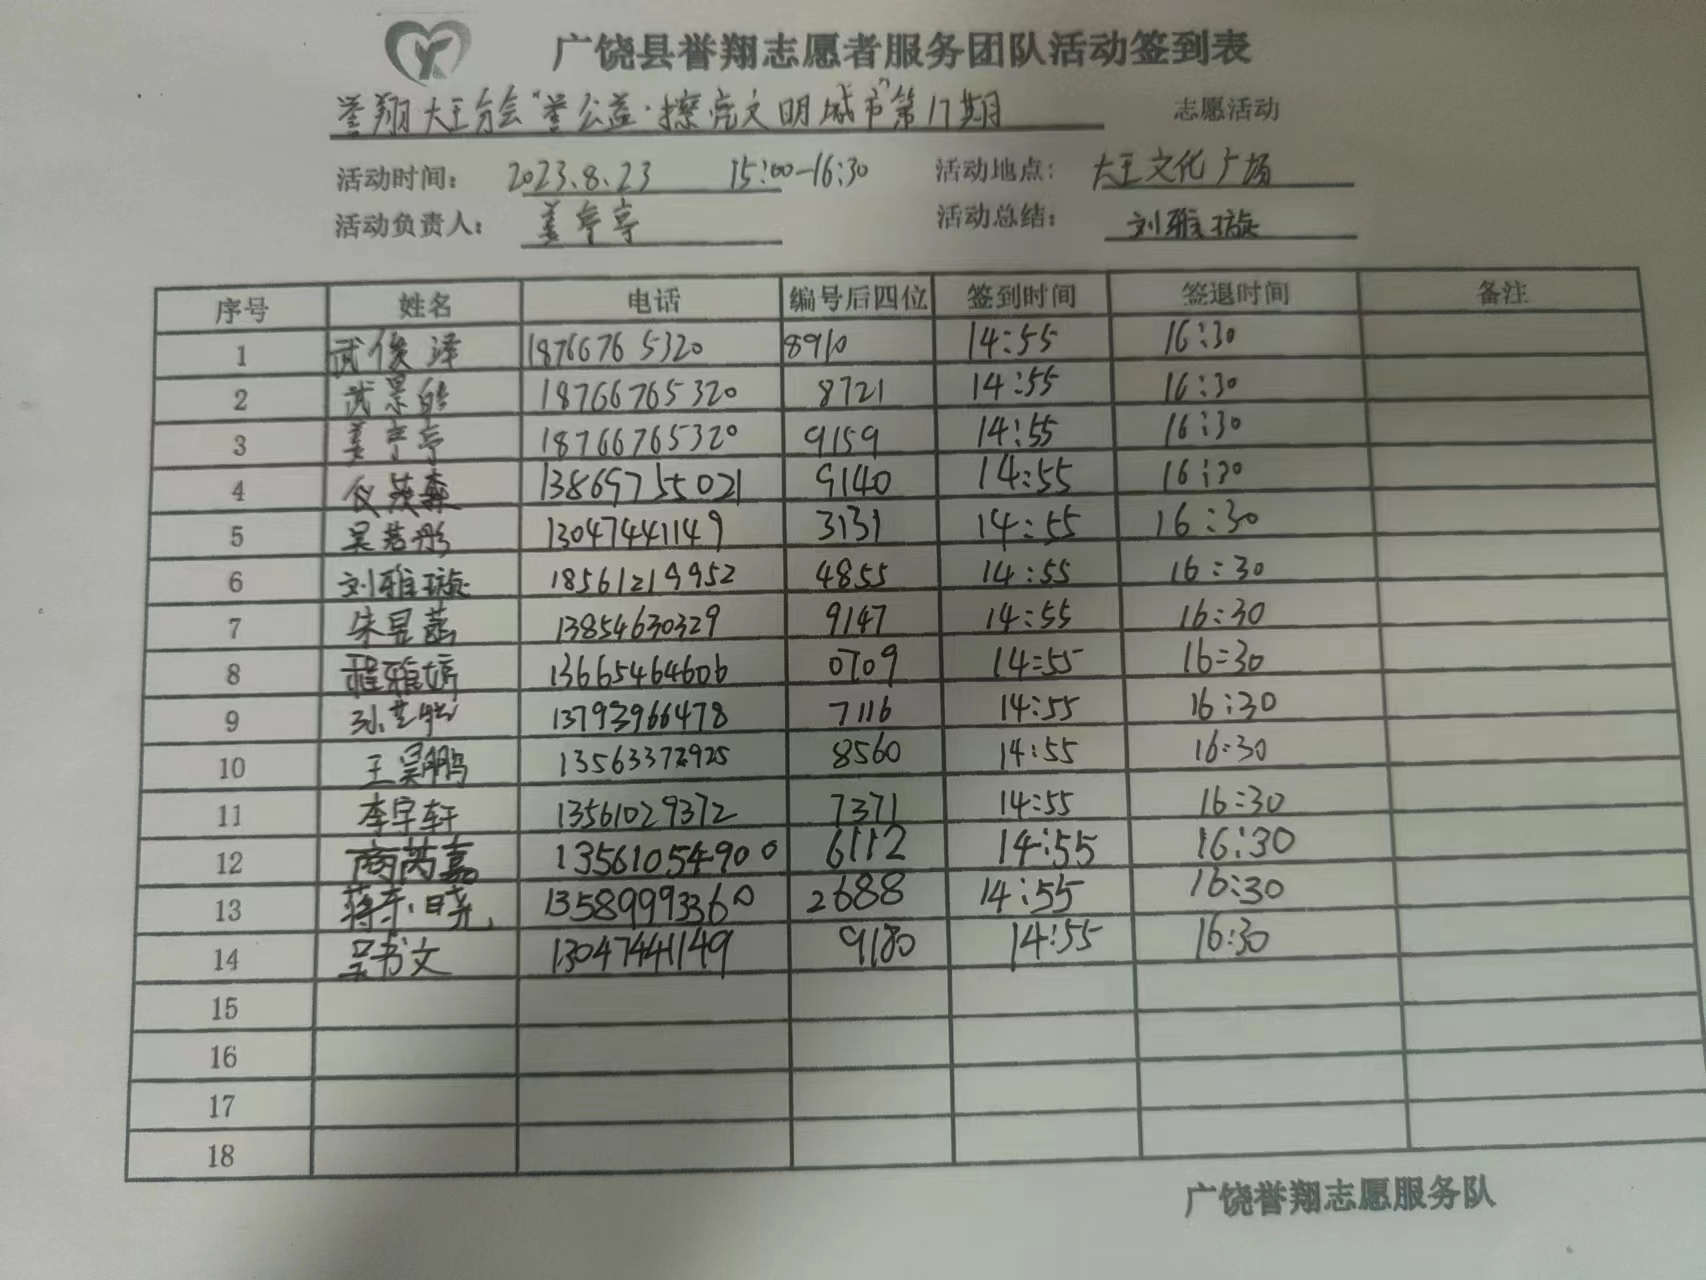 广饶县誉翔志愿者服务团队活动签到表
誉翔大王分会"誉公益·擦亮文明城市"第17期 志愿活动
活动时间： 2023.8.23 15:00-16:30 活动地点： 大王文化广场
活动负责人： 姜亭亭 活动总结： 刘雅璇
序号 姓名 电话 编号后四位 签到时间 签退时间 备注
1 武俊泽 18766765320 8910 14:55 16:30
2 武景皓 18766765320 8721 14:55 16:30
3 姜亭亭 18766765320 9159 14:55 16:30
4 仪茂森 13869755021 9140 14:55 16:30
5 吴若彤 13047441149 3131 14:55 16:30
6 刘雅璇 18561219952 4855 14:55 16:30
7 朱昱菡 13854630329 9147 14:55 16:30
8 程雅婷 13665464606 0709 14:55 16:30
9 孙艺 13793966478 7116 14:55 16:30
10 王昊鹏 13563372925 8560 14:55 16:30
11 李宇轩 13561029372 7371 14:55 16:30
12 商芮嘉 13561054900 6112 14:55 16:30
13 蒋东晓 13589993360 2688 14:55 16:30
14 吴书文 13047441149 9180 14:55 16:30
15
16
17
18
广饶誉翔志愿服务队